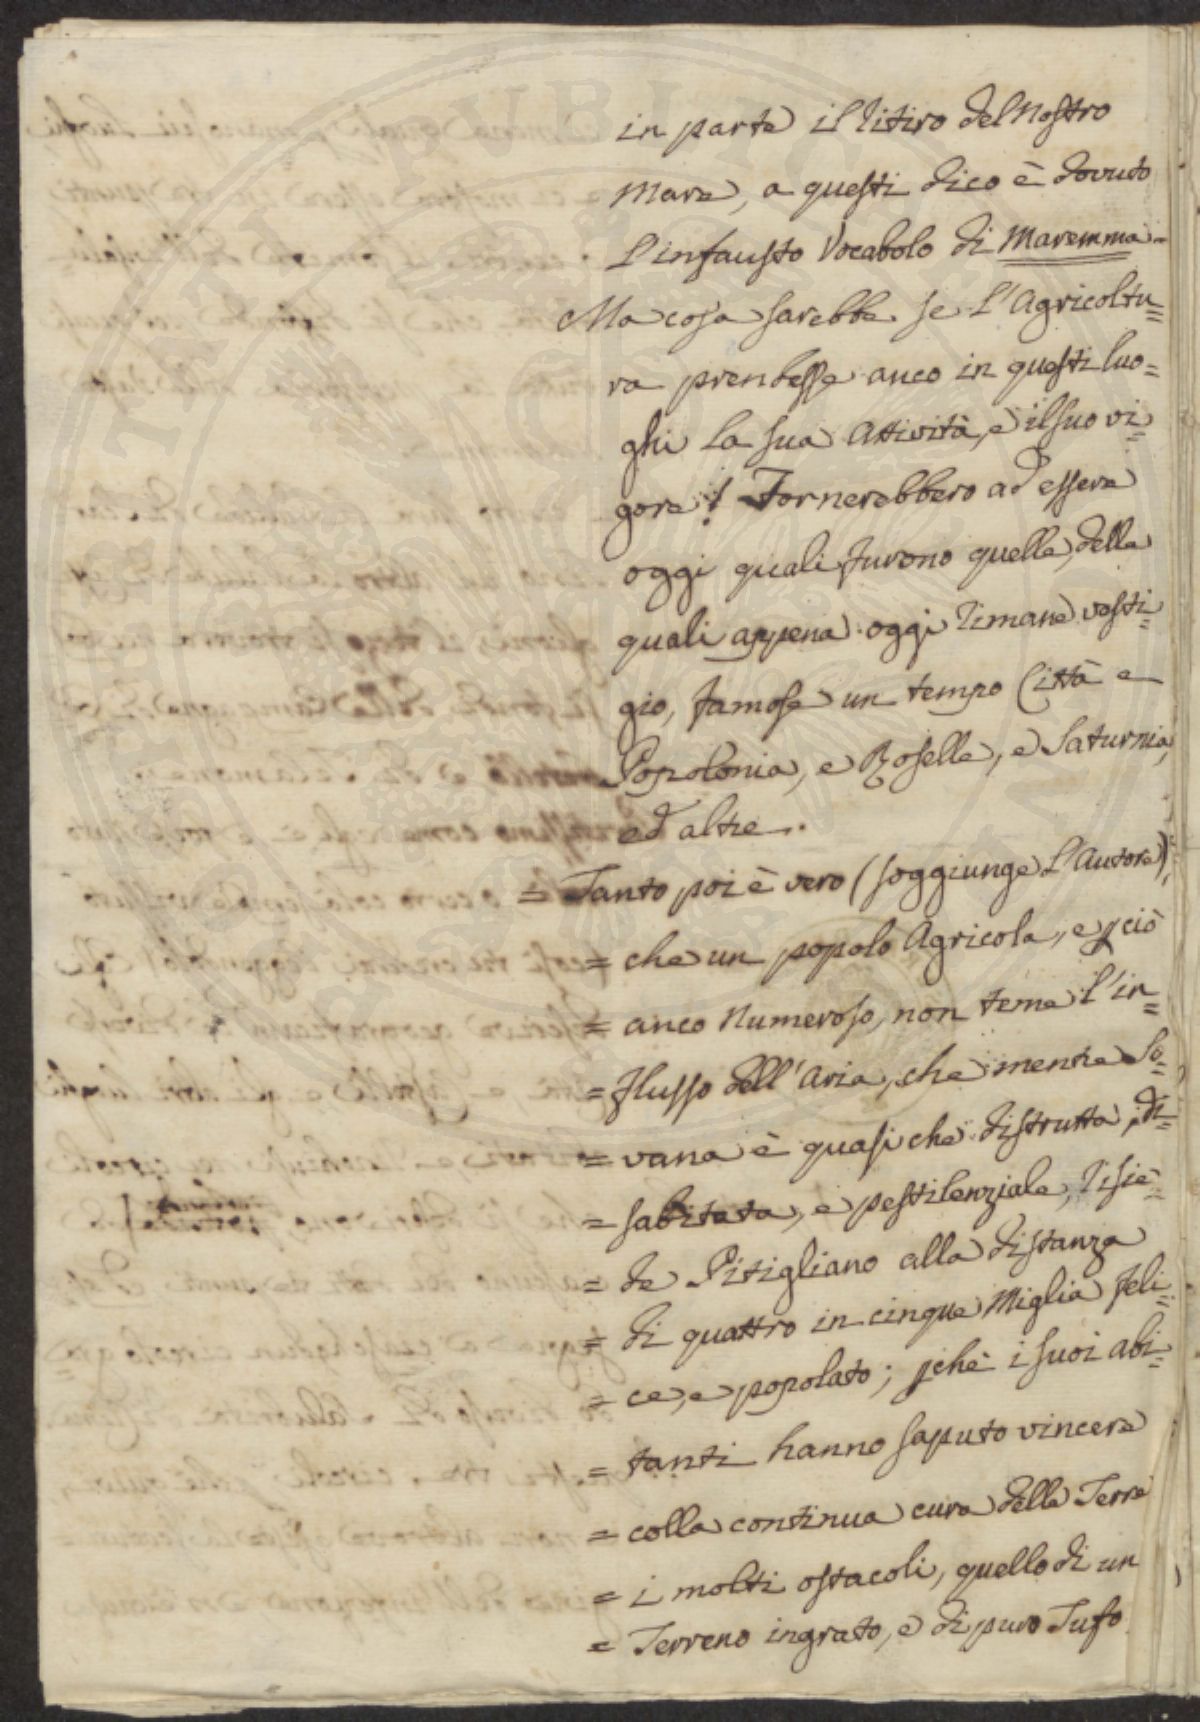 in parte il ritiro del Nostro
Mare, a questi dico è dovuto
l'infausto Vocabolo di Maremma
Ma cosa sarebbe se l'Agricoltu=
ra prendesse anco in questi luo=
ghi la sua Attività, e il suo vi=
gore! Tornerebbero ad essere
oggi quali furono quelle, delle
quali appena oggi rimane vesti=
gio, famose un tempo Città e
Popolonia, e Roselle, e Saturnia,
ed altre.
= Tanto poi è vero (soggiunge l'Autore)
= che un popolo Agricola, e pciò
= anco Numeroso, non teme l'in=
= flusso dell'Aria, che mentre So=
= vana è quasi che distrutta, di=
= sabitata, e pestilenziale, risie=
= de Pitigliano alla distanza
= di quattro in cinque Miglia feli=
= ce, e popolato; pchè i suoi abi=
= tanti hanno saputo vincere
= colla continua cura delle Terre
= i molti ostacoli, quello di un
= Terreno ingrato, e di puro Tufo